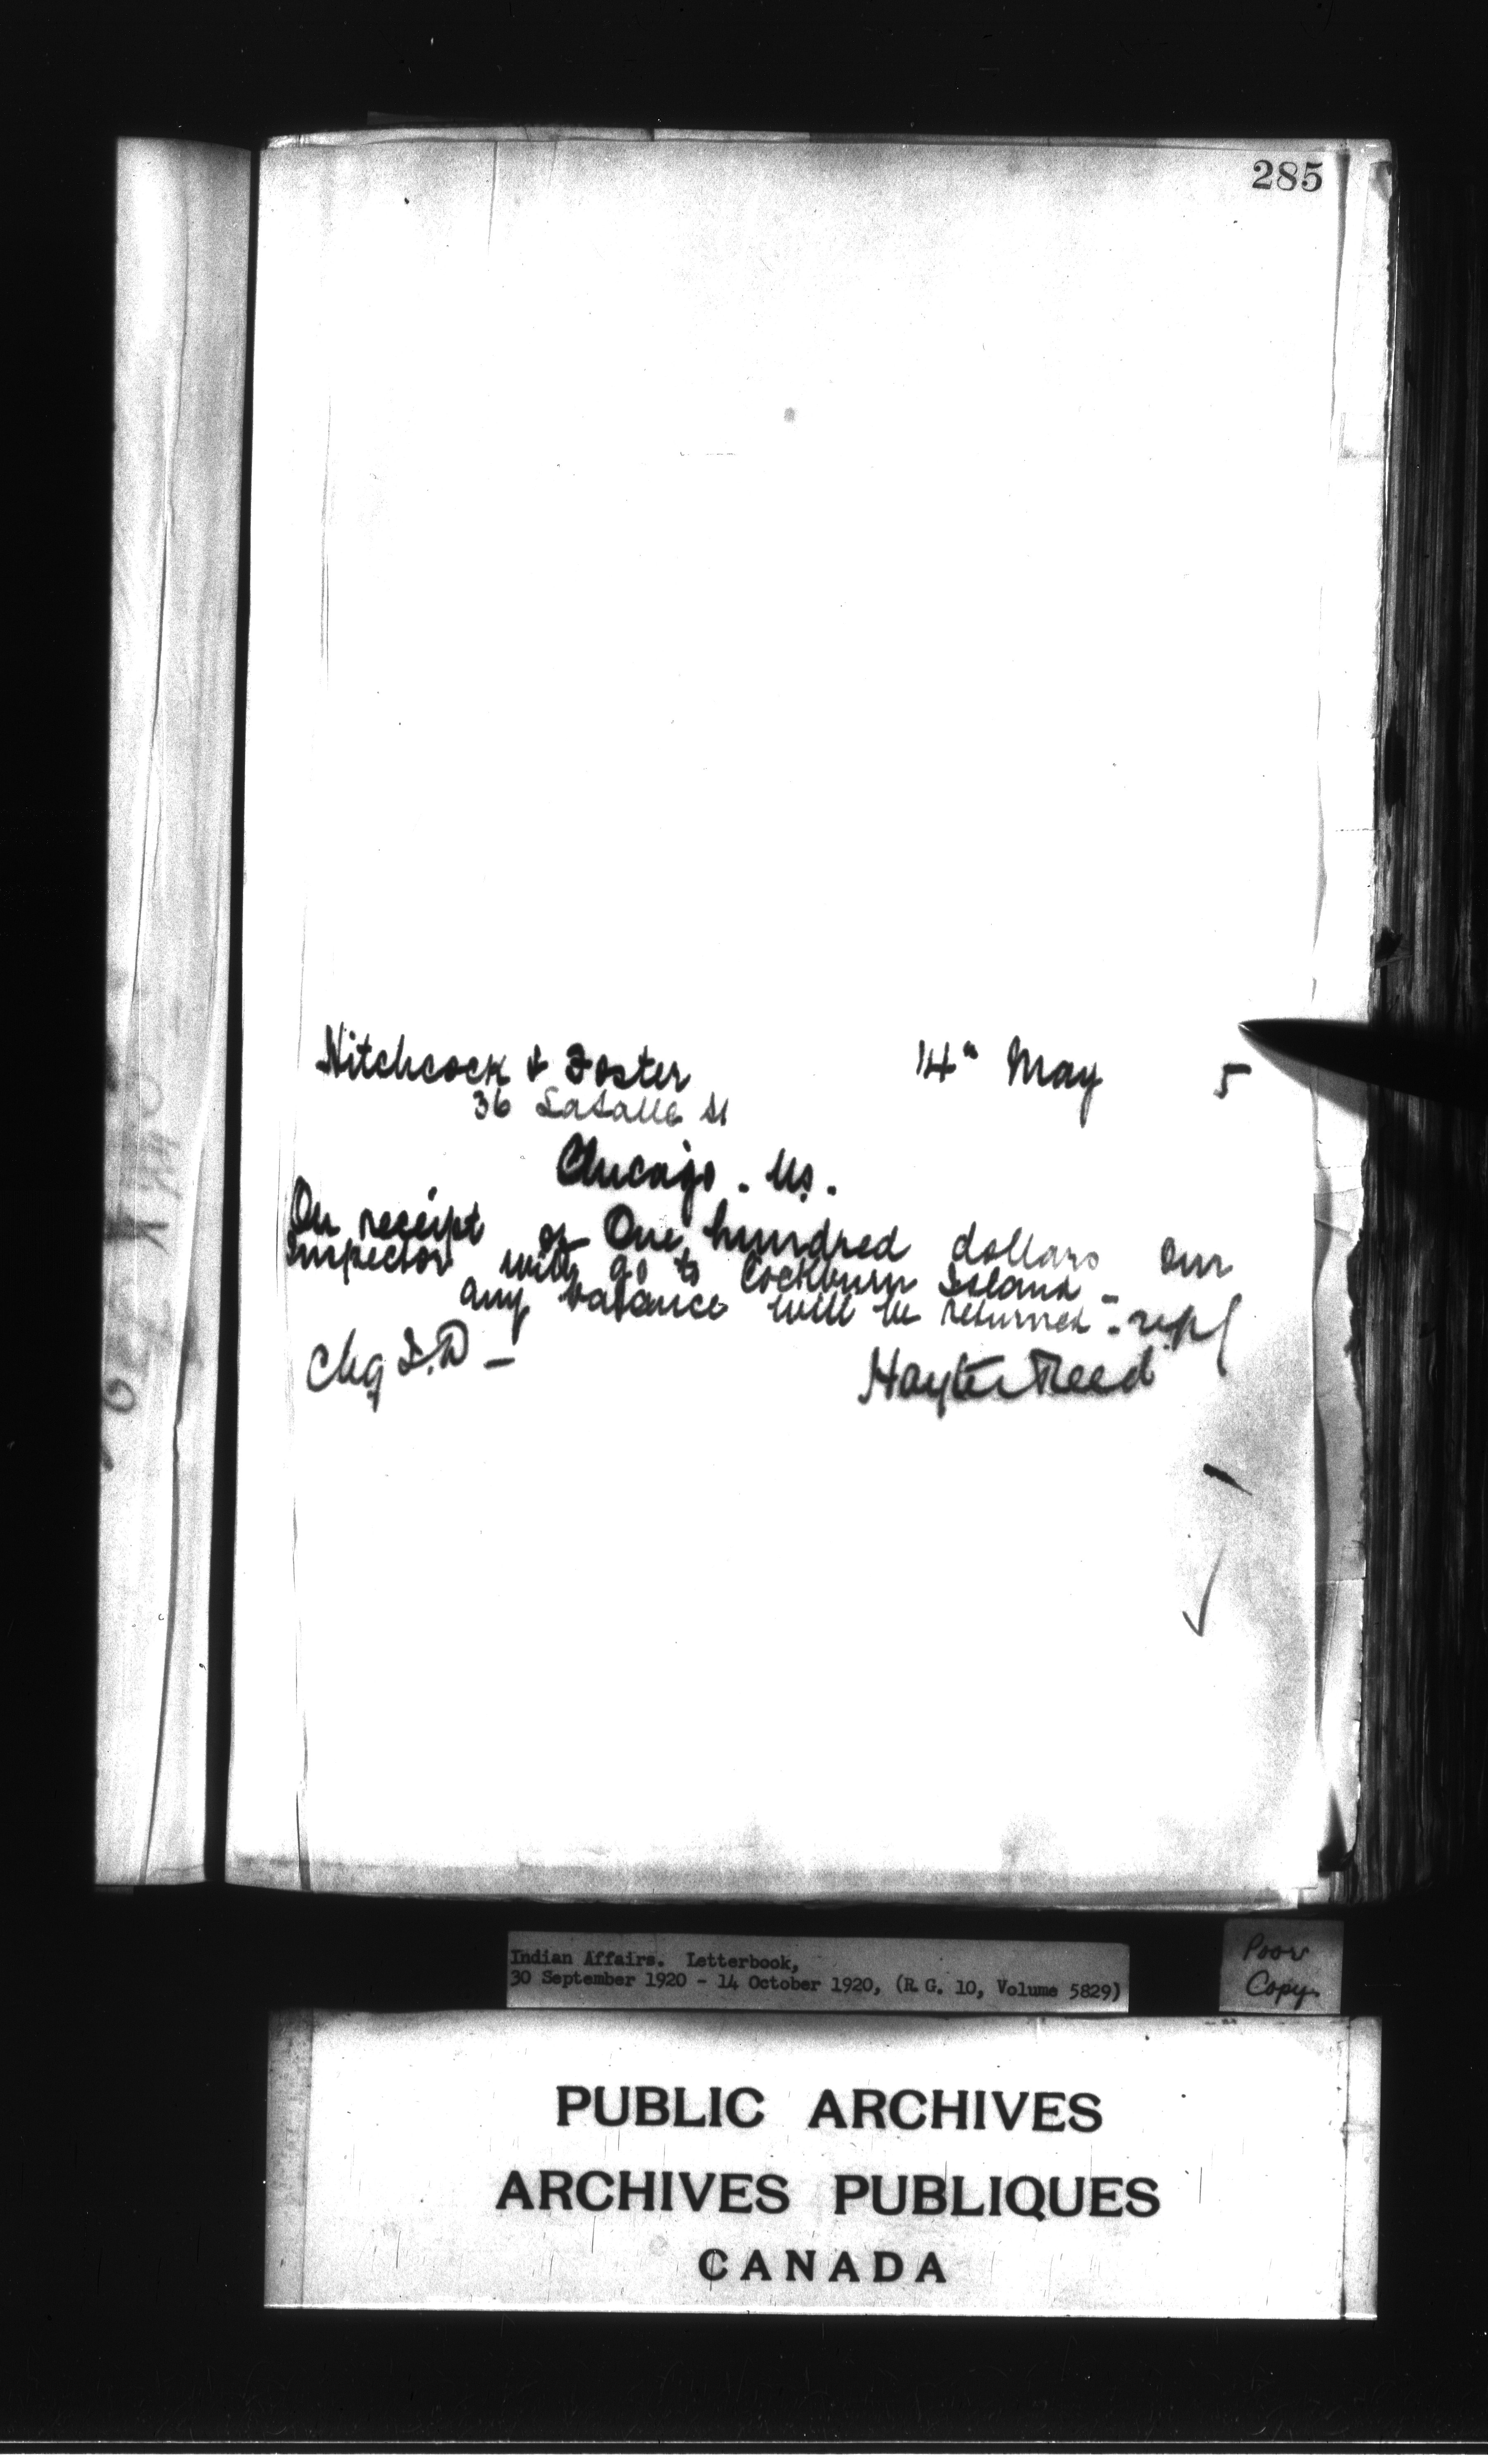 285
Hitchcock & Foster 14" May 5
36 LaSalle St
Chicago. Us.
On receipt of One hundred dollars our
Inspector will go to Cockburn Island -
any balance will be returned - repl
Chg I.D -
Hayter Reed
Indian Affairs. Letterbook,
30 September 1920 - 14 October 1920, (R.G. 10, Volume 5829)
Poor
Copy.
PUBLIC ARCHIVES
ARCHIVES PUBLIQUES
CANADA